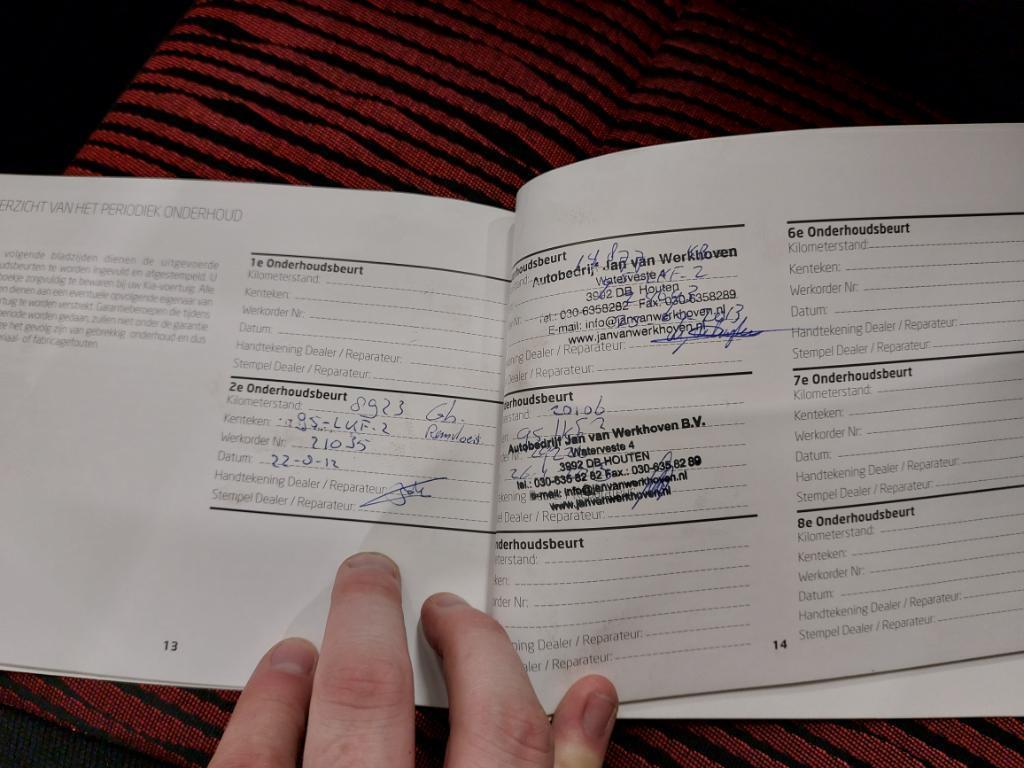 ERZICHT VAN HET PERIODIEK ONDERHOUD
volgende bladzijden dienen de uitgevoerde
udsbeurten te worden ingevuld en afgestempeld. U
boekje zorgvuldig te bewaren bij uw Kia-voertuig. Alle
en dienen aan een eventuele opvolgende eigenaar van
rtuig te worden verstrekt. Garantieberoepen die tijdens
periode worden gedaan, zullen niet onder de garantie
het gevolg zijn van gebrekkig onderhoud en dus
riaal- of fabricagefouten.
1e Onderhoudsbeurt
Kilometerstand:
Kenteken:
Werkorder Nr:
Datum:
Handtekening Dealer / Reparateur:
Stempel Dealer / Reparateur:
2e Onderhoudsbeurt
Kilometerstand: 8923 Gb.
Kenteken: 95-LKF-2
Werkorder Nr: 21035
Datum:
Handtekening Dealer / Reparateur:
Stempel Dealer / Reparateur:
13
houdsbeurt
Autobedrijf Jan van Werkhoven
Waterveste 4
3992 DB Houten
Tel.: 030-6358282 Fax: 030-6358289
E-mail: info@janvanwerkhoven.nl
www.janvanwerkhoven.nl
ening Dealer / Reparateur:
Dealer / Reparateur:
erhoudsbeurt
stand: 20106
Autobedrijf Jan van Werkhoven B.V.
Waterveste 4
3992 DB HOUTEN
tel.: 030-635 82 82 Fax.: 030-635 82 89
e-mail: info@janvanwerkhoven.nl
www.janvanwerkhoven.nl
el Dealer / Reparateur:
nderhoudsbeurt
eterstand:
ken:
order Nr:
ning Dealer / Reparateur:
aler / Reparateur:
6e Onderhoudsbeurt
Kilometerstand:
Kenteken:
Werkorder Nr:
Datum:
Handtekening Dealer / Reparateur:
Stempel Dealer / Reparateur:
7e Onderhoudsbeurt
Kilometerstand:
Kenteken:
Werkorder Nr:
Datum:
Handtekening Dealer / Reparateur:
Stempel Dealer / Reparateur:
8e Onderhoudsbeurt
Kilometerstand:
Kenteken:
Werkorder Nr:
Datum:
Handtekening Dealer / Reparateur:
Stempel Dealer / Reparateur:
14